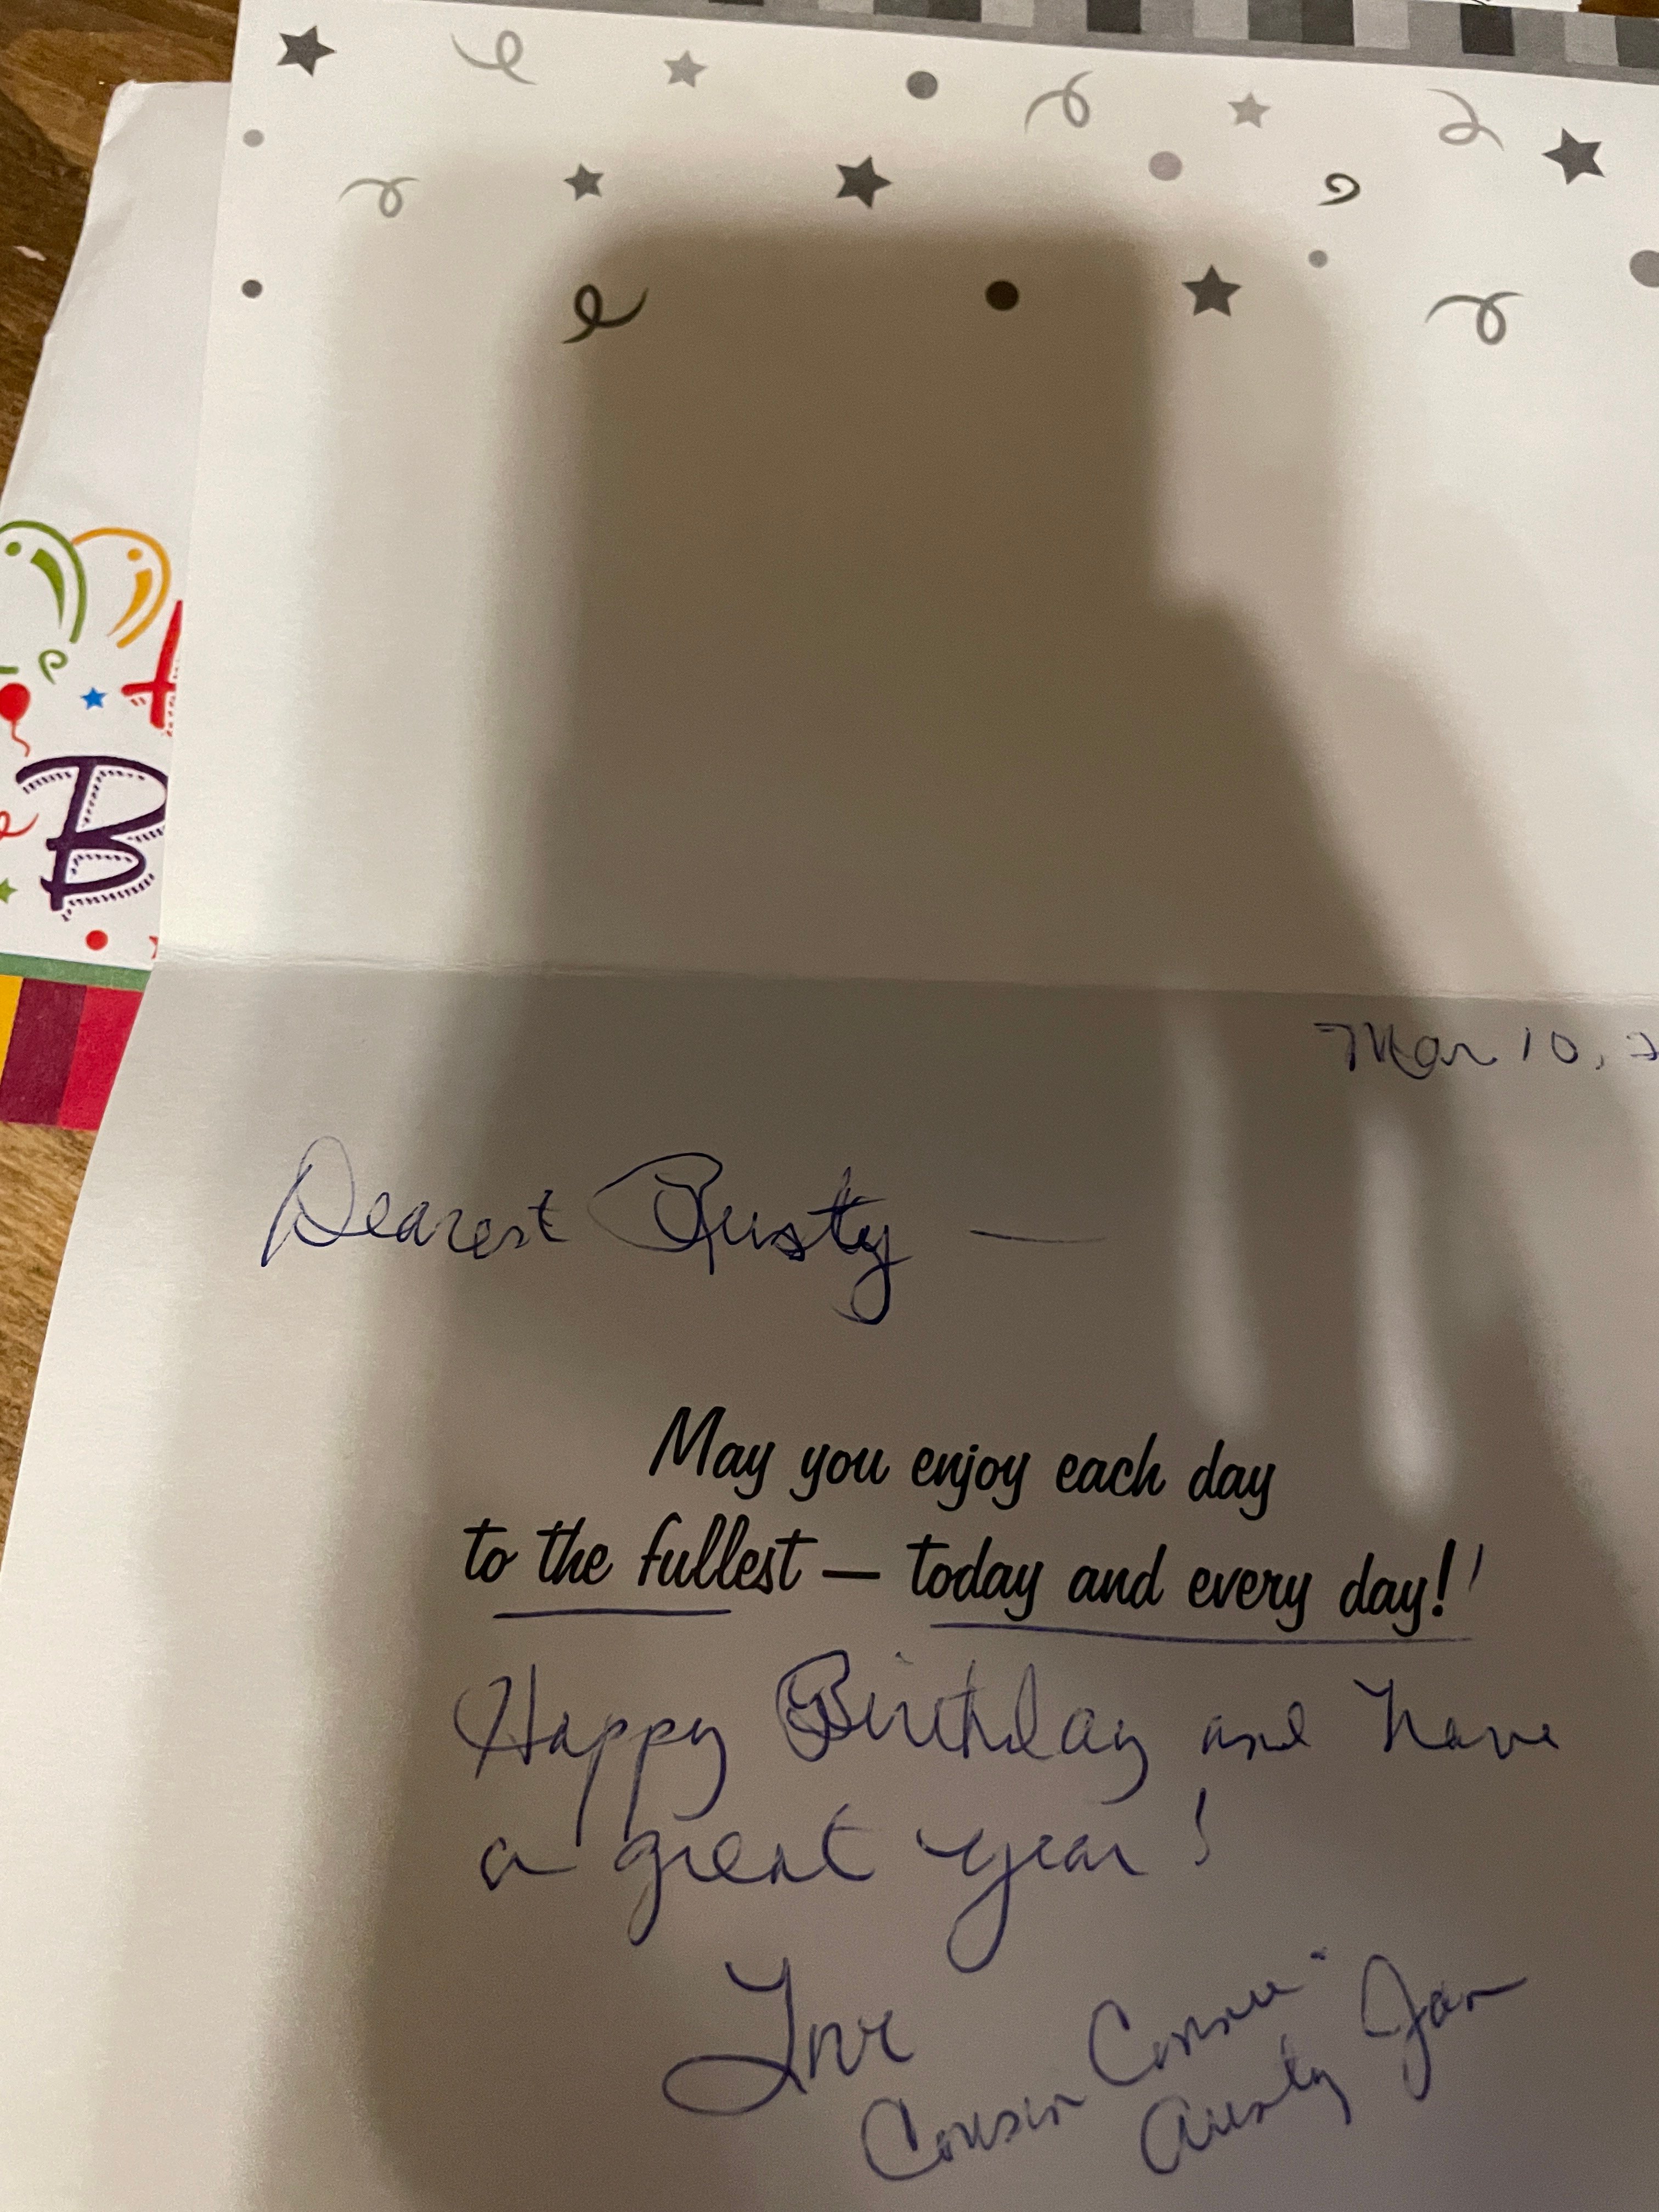 H
B
Mar 10, 2
Dearest Rusty —
May you enjoy each day
to the fullest — today and every day!!
Happy Birthday and have
a great year!
Love
Cousin Connie
Aunty Jan